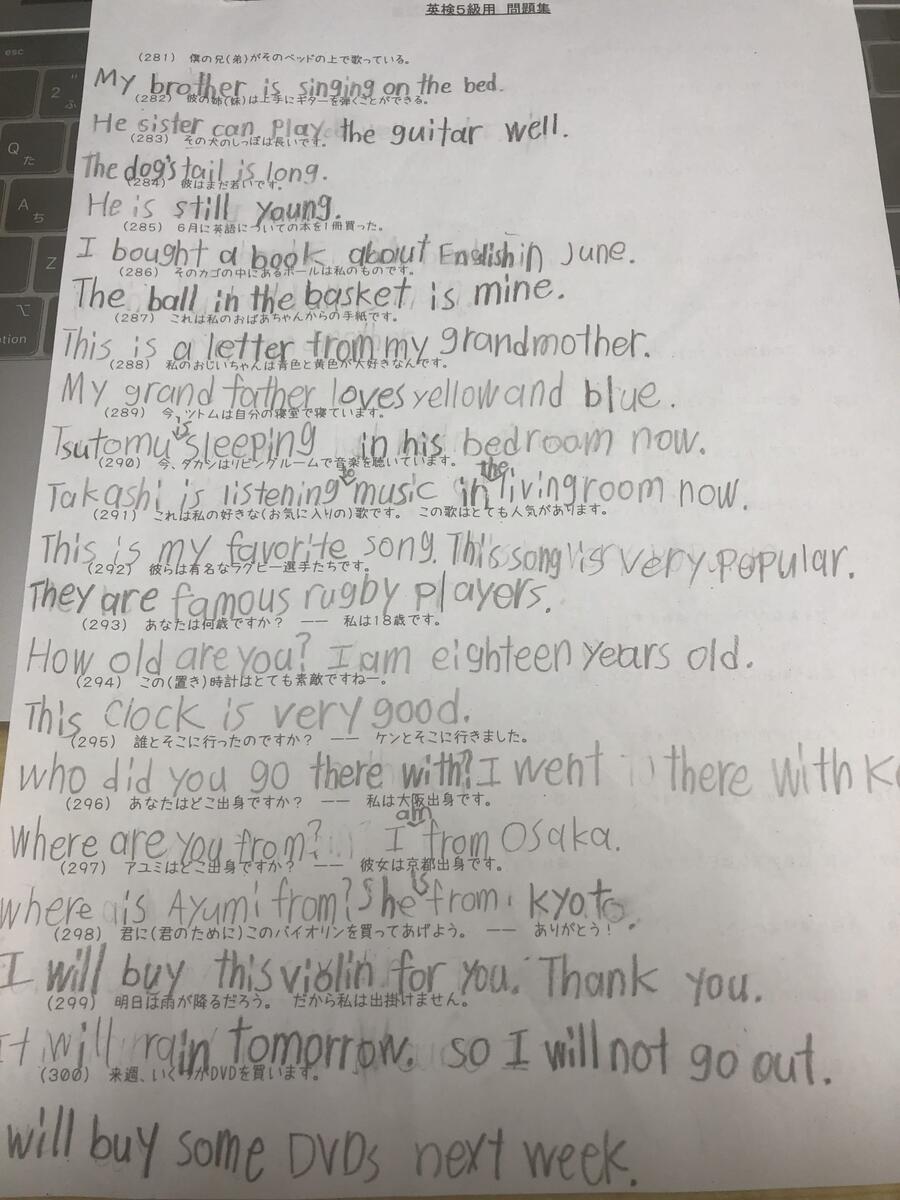 英検5級用 問題集
(281) 僕の兄(弟)がそのベッドの上で歌っている。
My brother is singing on the bed.
(282) 彼の姉(妹)は上手にギターを弾くことができる。
He sister can play the guitar well.
(283) その犬のしっぽは長いです。
The dog's tail is long.
(284) 彼はまだ若いです。
He is still young.
(285) 6月に英語についての本を1冊買った。
I bought a book about English in June.
(286) そのカゴの中にあるボールは私のものです。
The ball in the basket is mine.
(287) これは私のおばあちゃんからの手紙です。
This is a letter from my grandmother.
(288) 私のおじいちゃんは青色と黄色が大好きなんです。
My grand father loves yellow and blue.
(289) 今、ツトムは自分の寝室で寝ています。
Tsutomu is sleeping in his bedroom now.
(290) 今、タカシはリビングルームで音楽を聴いています。
Takashi is listening to music in the living room now.
(291) これは私の好きな(お気に入りの)歌です。 この歌はとても人気があります。
This is my favorite song. This song is very popular.
(292) 彼らは有名なラグビー選手たちです。
They are famous rugby players.
(293) あなたは何歳ですか? ―― 私は18歳です。
How old are you? I am eighteen years old.
(294) この(置き)時計はとても素敵ですねー。
This clock is very good.
(295) 誰とそこに行ったのですか? ―― ケンとそこに行きました。
who did you go there with? I went there with K
(296) あなたはどこ出身ですか? ―― 私は大阪出身です。
Where are you from? I am from Osaka.
(297) アユミはどこ出身ですか? ―― 彼女は京都出身です。
where is Ayumi from? She is from Kyoto.
(298) 君に(君のために)このバイオリンを買ってあげよう。 ―― ありがとう!
I will buy this violin for you. Thank you.
(299) 明日は雨が降るだろう。 だから私は出掛けません。
It will rain tomorrow. so I will not go out.
(300) 来週、いくつかDVDを買います。
will buy some DVDs next week.